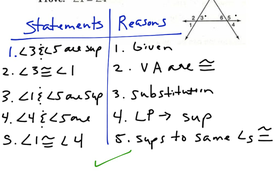 Statements Reasons
1. ∠3 & ∠5 are sup 1. Given
2. ∠3 ≅ ∠1 2. VA are ≅
3. ∠1 & ∠5 are sup 3. Substitution
4. ∠4 & ∠5 are 4. LP → sup
5. ∠1 ≅ ∠4 5. sups to same ∠s ≅